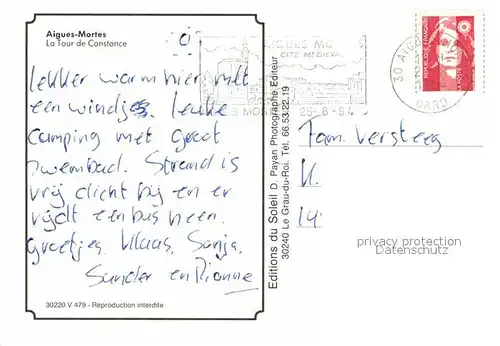 Aigues-Mortes
La Tour de Constance
lekker warm hier met
een windje. leuke
camping met groot
zwembad. Strand is
vrij dicht bij en er
rijdt een bus heen.
groetjes. Klaas, Sonja,
Sander en Dianne
30220 V 479 - Reproduction interdite
Editions du Soleil D. Payan Photographe Editeur
30240 Le Grau-du-Roi. Tél. 66.53.22.19
AIGUES MO
CITE MEDIEVA
25-8-94
30 AIGU
GARD
REPUBLIQUE FRANÇAISE
LA POSTE
Fam. Versteeg
K.
14.
privacy protection
Datenschutz